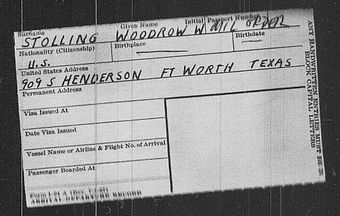 Surname Given Name Initial Passport Number
STOLLING WOODROW W MIL
Nationality (Citizenship) Birthplace Birthdate
U.S.
United States Address
909 S HENDERSON FT WORTH TEXAS
Permanent Address
Visa Issued At
Date Visa Issued
Vessel Name or Airline & Flight No. of Arrival
Passenger Boarded At
ARRIVAL-DEPARTURE RECORD
ANY HANDWRITTEN ENTRIES MUST BE IN
BLOCK CAPITAL LETTERS